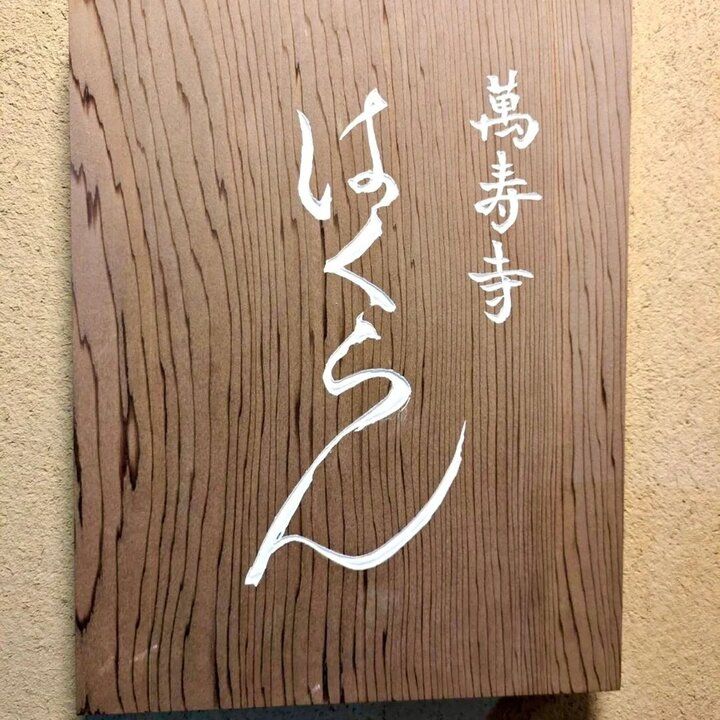 萬寿寺
はくらん